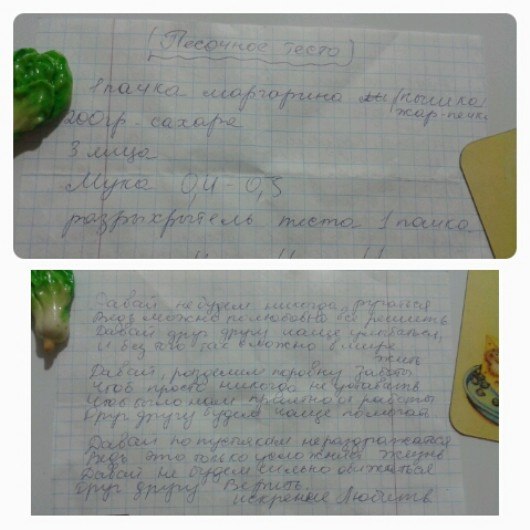 (Песочное тесто)
1 пачка маргарина (пышка
жар-печка
200гр - сахара
3 яица
Мука 0,4-0,5
разрыхрытель теста 1 пачка
Давай не будем никогда ругаться
Ведь можно полюбовно всё решить
Давай друг другу чаще улыбаться,
И без того так сложно в мире
жить
Давай, разделим поровну заботы
Чтоб просто никогда не уставать
Чтоб было нам приятно от работы
Друг другу чаще помогать.
Давай по пустякам нераздражатся
Ведь это только усложняет жизнь
Давай не будем сильно обижаться
Друг другу Верить,
искренне Любить